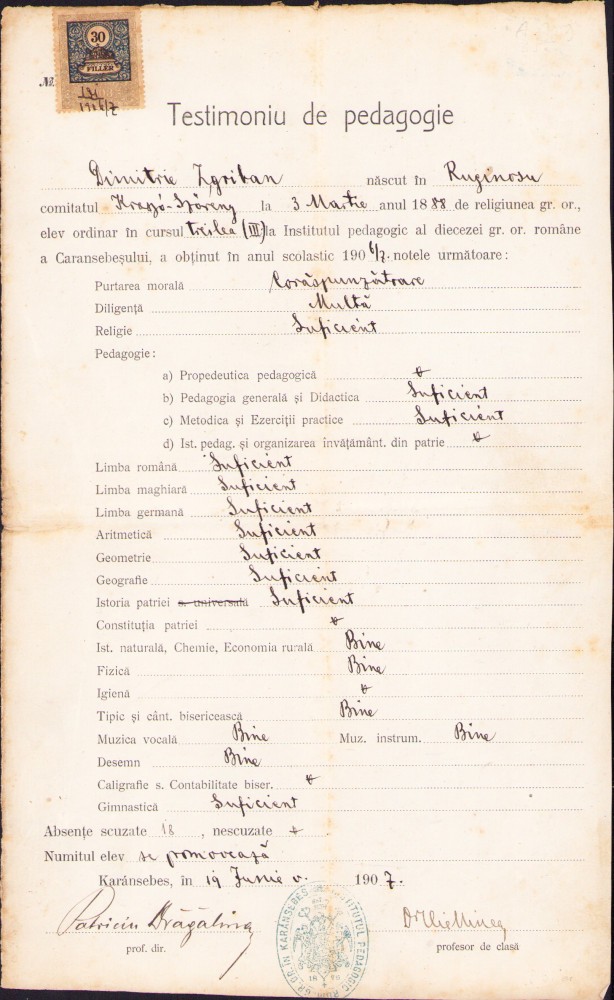 Nr.
30
FILLÉR
Testimoniu de pedagogie
Dimitrie Zgriban născut în Ruginosu
comitatul Krassó-Szörény la 3 Martie anul 1888 de religiunea gr. or.,
elev ordinar în cursul treilea (III) la Institutul pedagogic al diecezei gr. or. române
a Caransebeșului, a obținut în anul scolastic 1906/7. notele următoare:
Purtarea morală Corăspunzătoare
Diligență Multă
Religie Suficient
Pedagogie:
a) Propedeutica pedagogică
b) Pedagogia generală și Didactica Suficient
c) Metodica și Ezerciții practice Suficient
d) Ist. pedag. și organizarea învățământ. din patrie
Limba română Suficient
Limba maghiară Suficient
Limba germană Suficient
Aritmetică Suficient
Geometrie Suficient
Geografie Suficient
Istoria patriei s. universală Suficient
Constituția patriei
Ist. naturală, Chemie, Economia rurală Bine
Fizică Bine
Igienă
Tipic și cânt. bisericească Bine
Muzica vocală Bine Muz. instrum. Bine
Desemn Bine
Caligrafie s. Contabilitate biser.
Gimnastică Suficient
Absențe scuzate 18, nescuzate
Numitul elev se promovează
Karánsebes, în 19 Iunie v. 1907.
Patriciu Drăgălina Dr Ilie Minea
prof. dir. profesor de clasă